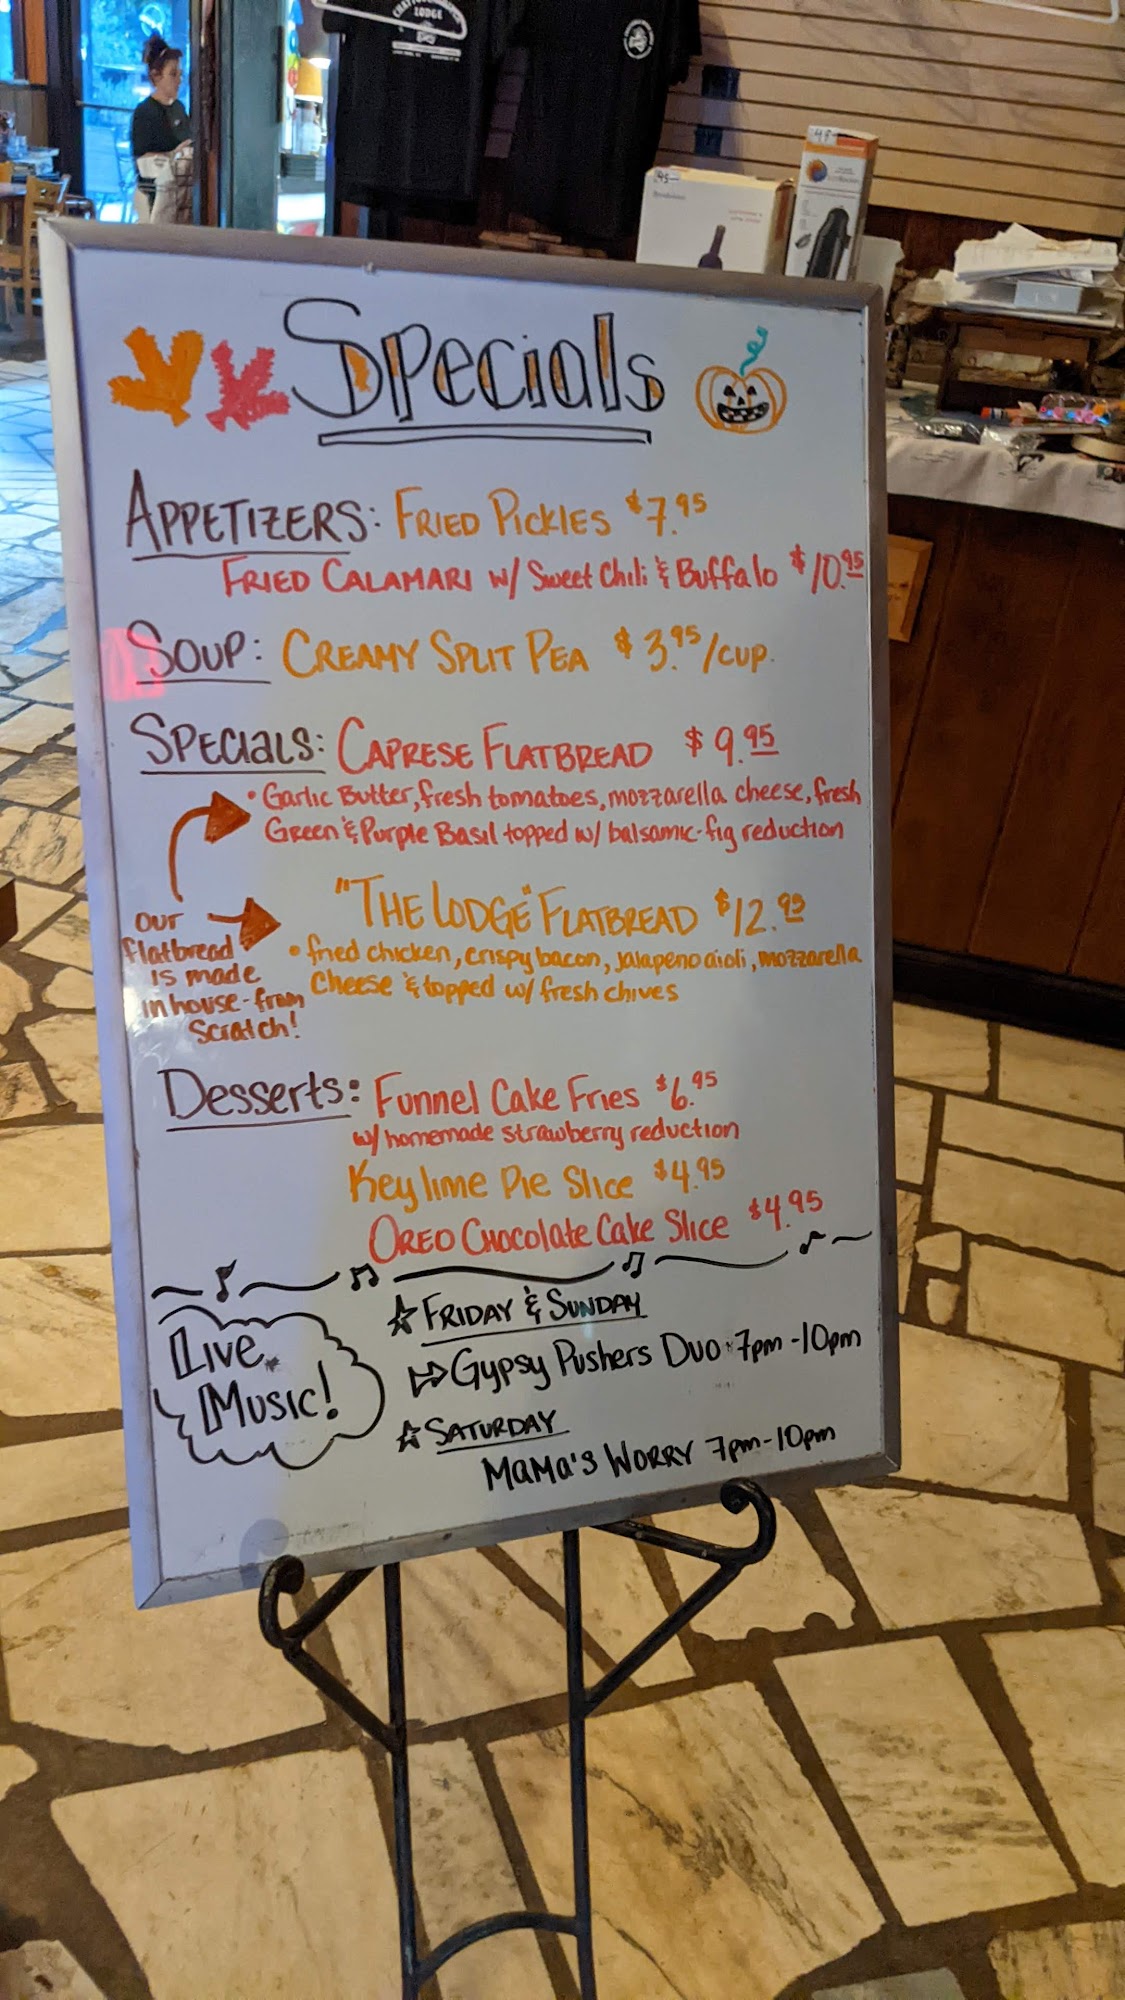 LODGE
45
48
Specials
APPETIZERS: FRIED PICKLES $7.95
FRIED CALAMARI w/ Sweet Chili & Buffalo $10.95
SOUP: CREAMY SPLIT PEA $3.95/CUP.
SPECIALS: CAPRESE FLATBREAD $9.95
• Garlic Butter, fresh tomatoes, mozzarella cheese, fresh
Green & Purple Basil topped w/ balsamic-fig reduction
"THE LODGE" FLATBREAD $12.95
• fried chicken, crispy bacon, jalapeno aioli, mozzarella
Cheese & topped w/ fresh chives
our
flatbread
is made
in house-from
Scratch!
Desserts: Funnel Cake Fries $6.95
w/ homemade strawberry reduction
Key lime Pie Slice $4.95
OREO Chocolate Cake Slice $4.95
Live
Music!
FRIDAY & SUNDAY
Gypsy Pushers Duo • 7pm-10pm
SATURDAY
MAMA'S WORRY 7pm-10pm